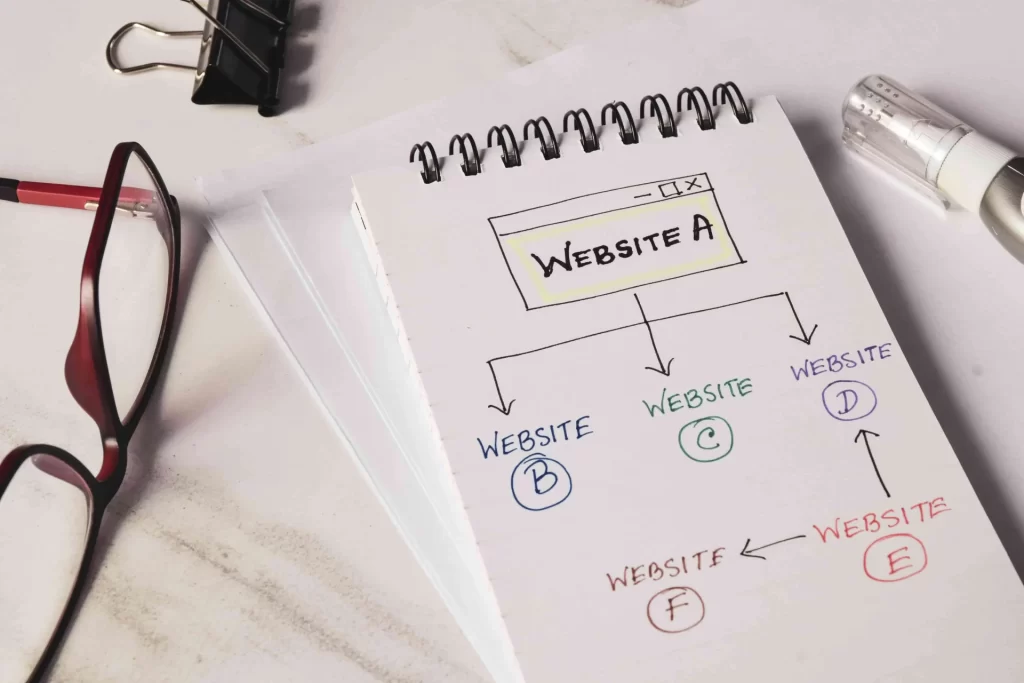 WEBSITE A
WEBSITE
B
WEBSITE
C
WEBSITE
D
WEBSITE
E
WEBSITE
F